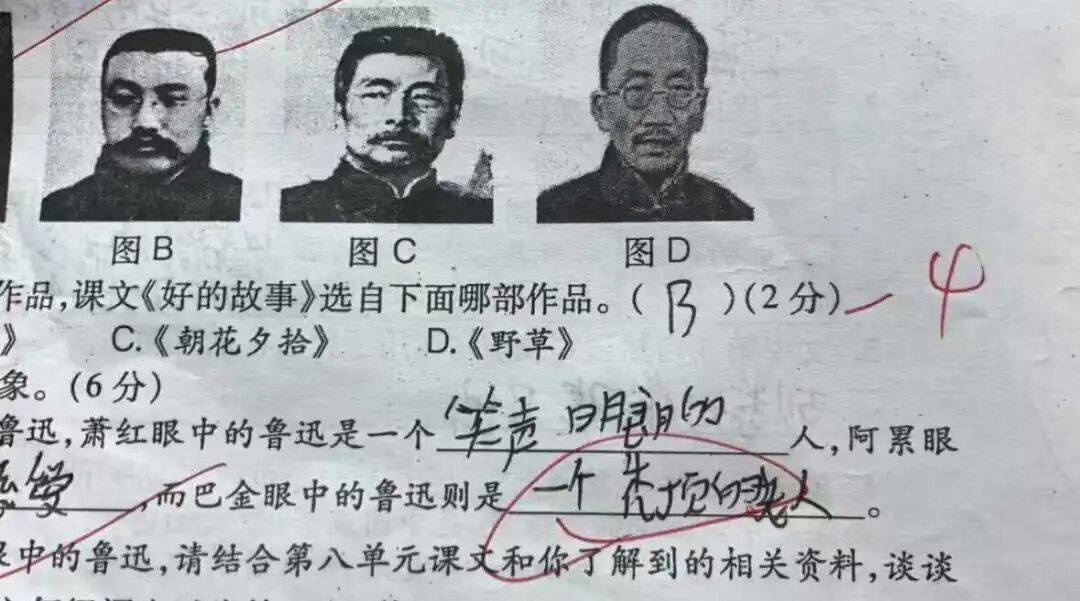 图B 图C 图D
作品,课文《好的故事》选自下面哪部作品。(B)(2分)
》 C.《朝花夕拾》 D.《野草》
象。(6分)
鲁迅,萧红眼中的鲁迅是一个笑声明朗的人,阿累眼
,而巴金眼中的鲁迅则是一个秃顶的老人。
眼中的鲁迅,请结合第八单元课文和你了解到的相关资料,谈谈